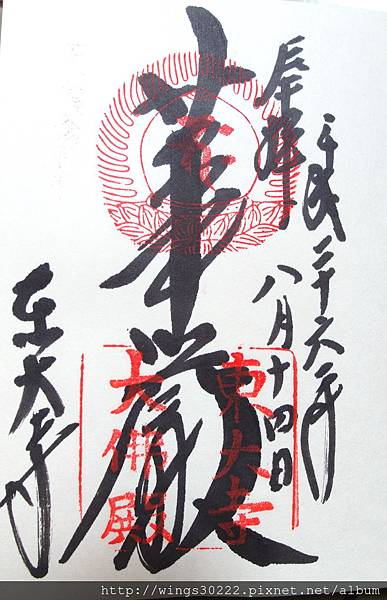 奉拝
平成二十六年
八月十四日
華厳
東大寺
東大寺
大佛殿
http://wings30222.pixnet.net/album